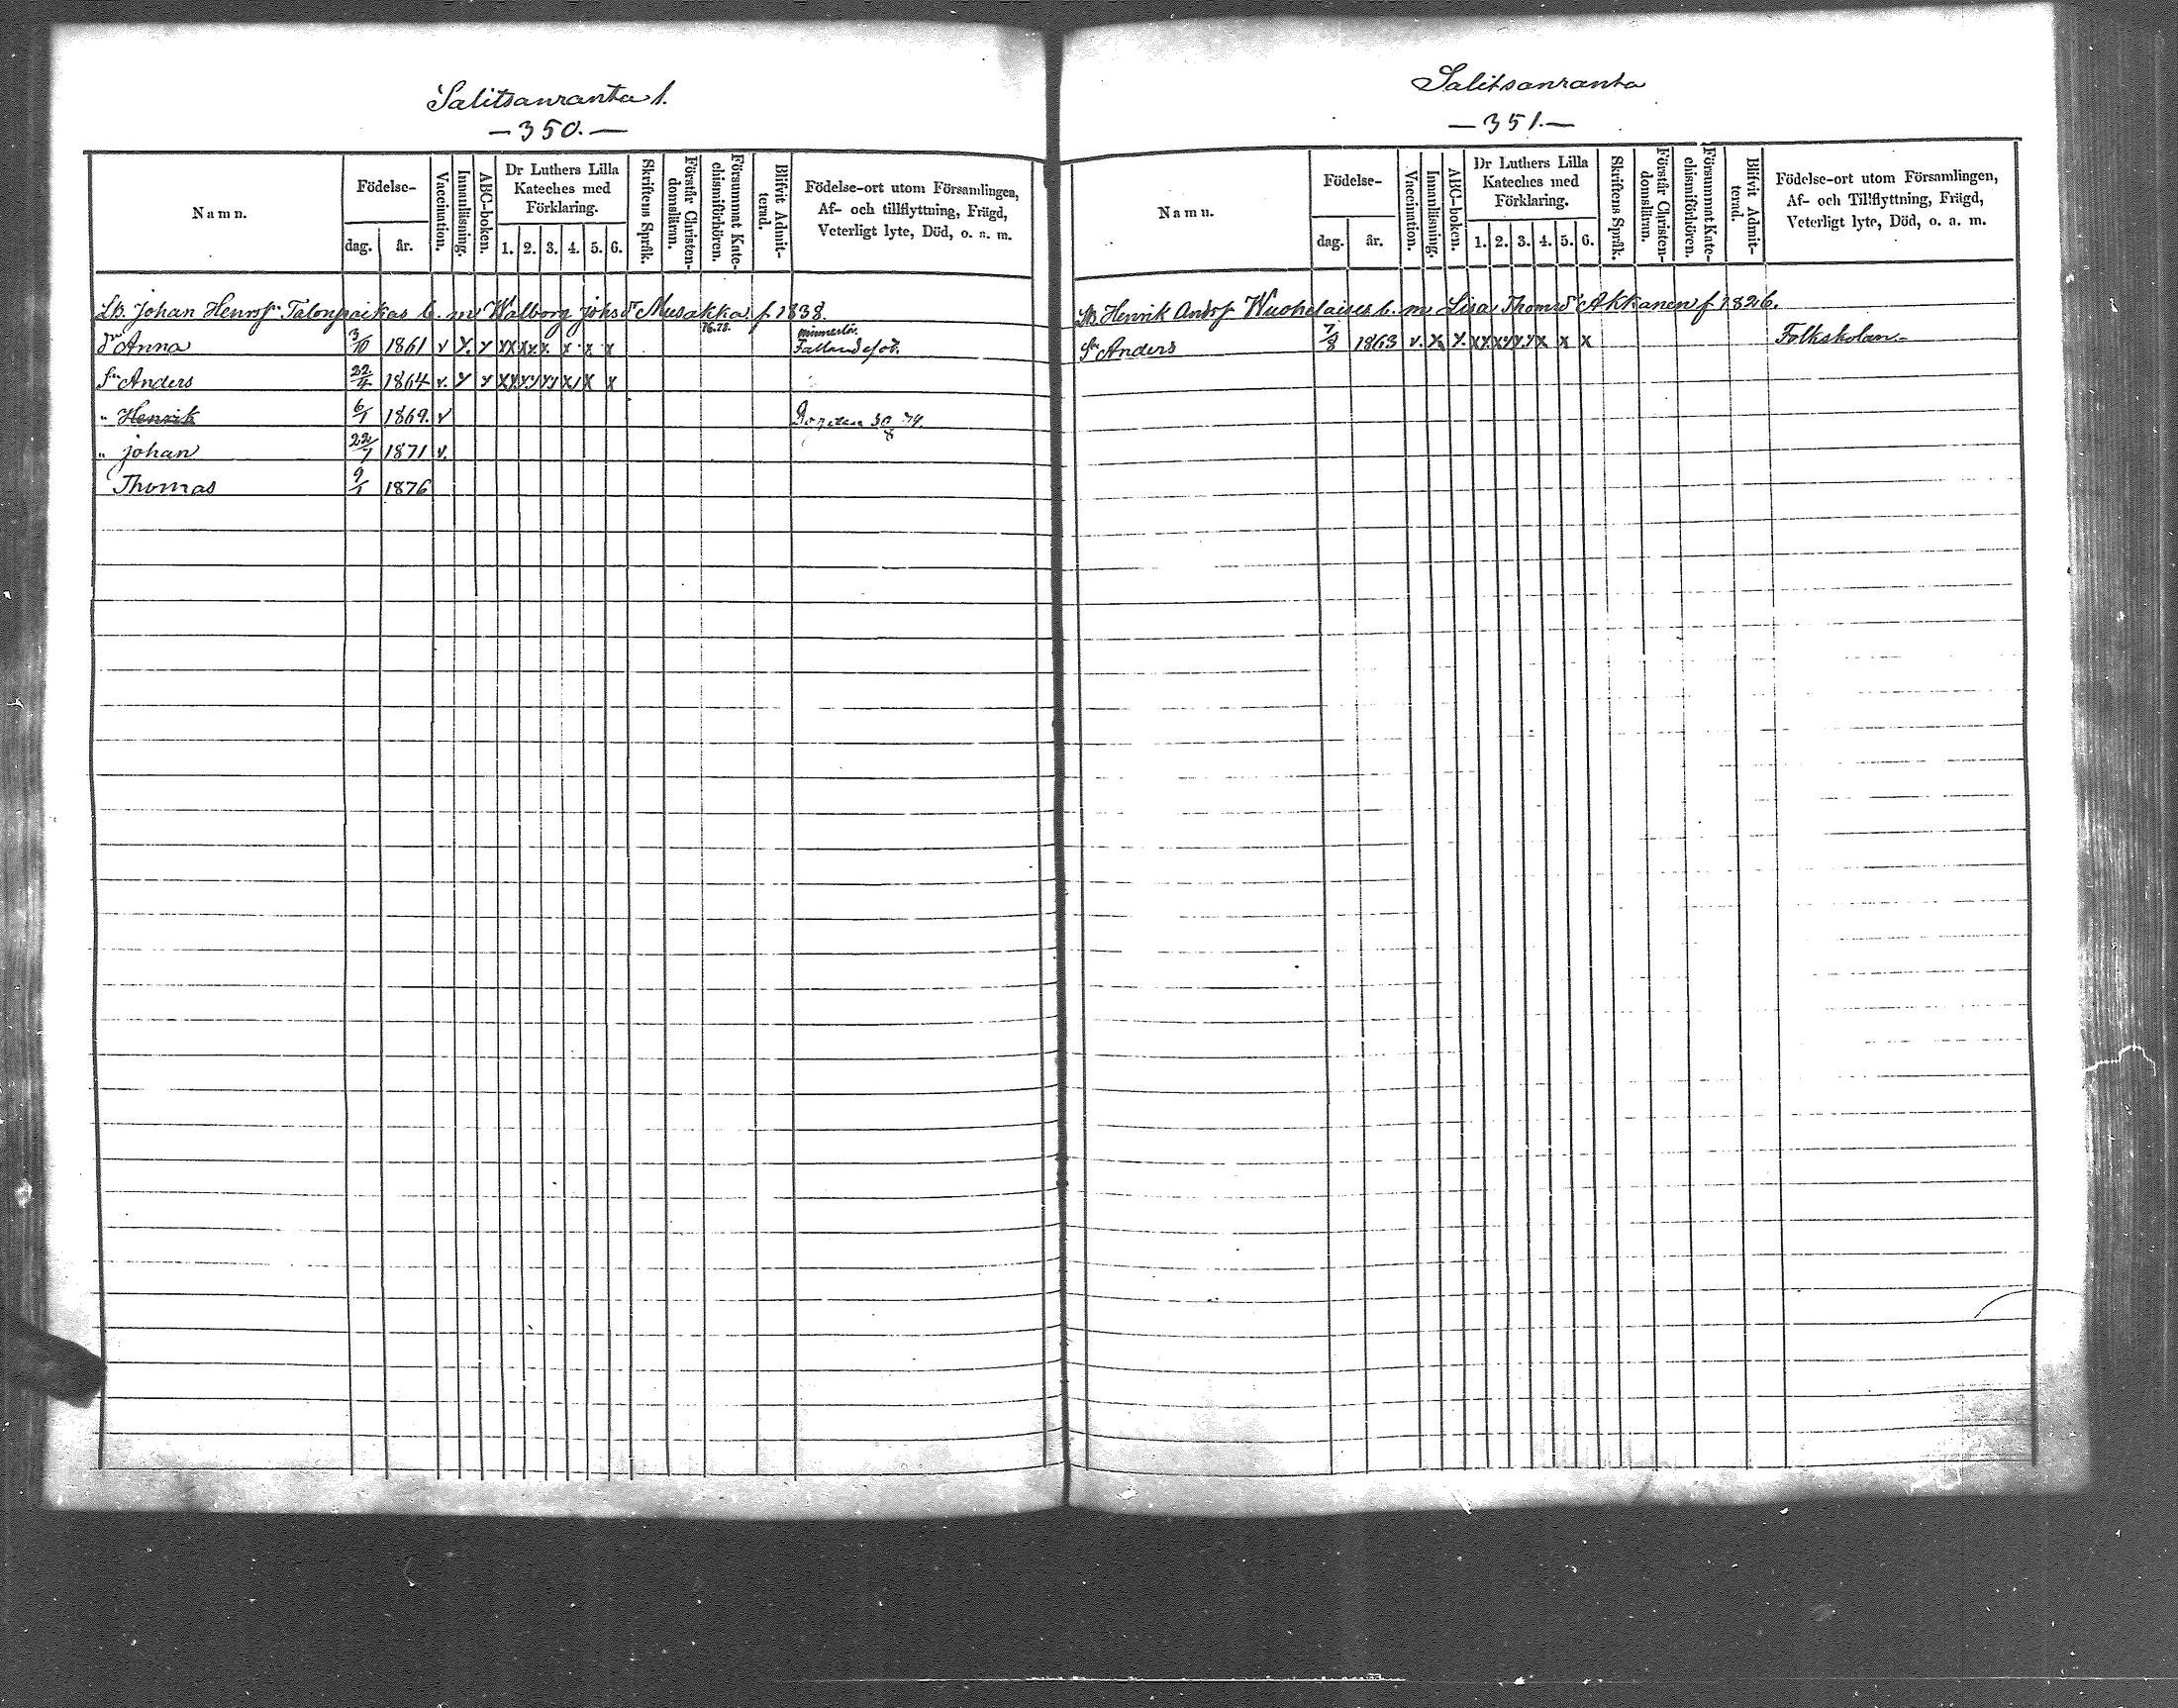 Salitsanranta 1.
—350.—
Namn.
Födelse-
dag.
år.
Vaccination.
Innanläsning.
ABC-boken.
Dr Luthers Lilla
Kateches med
Förklaring.
1. 2. 3. 4. 5. 6.
Skriftens Språk.
Förstår Christen-
domsläran.
Försummat Kate-
chismiförhören.
Blifvit Admit-
terad.
Födelse-ort utom Församlingen,
Af- och tillflyttning, Frägd,
Veterligt lyte, Död, o. a. m.
Johan Henrs Talonpoikas b. m. Walborg Johsdr Musakka f 1838.
dr Anna 3/10 1861 v x. x x x x x. x. x x x 76.78. minneslös. Fallandesot.
Sn Anders 22/4 1864 v. x x x x. x. x x x x x x
" Henrik 6/1 1869. v 30 74.
" Johan 22/7 1871 v.
Thomas 9/1 1876
Salitsanranta
—351.—
Namn.
Födelse-
dag.
år.
Vaccination.
Innanläsning.
ABC-boken.
Dr Luthers Lilla
Kateches med
Förklaring.
1. 2. 3. 4. 5. 6.
Skriftens Språk.
Förstår Christen-
domsläran.
Försummat Kate-
chismiförhören.
Blifvit Admit-
terad.
Födelse-ort utom Församlingen,
Af- och Tillflyttning, Frägd,
Veterligt lyte, Död, o. a. m.
Henrik Andrs b. m. Lisa Thomsdr Akkanen f 1826.
Sn Anders 7/8 1863 v. x x. x x x x x x x x x Folkskolan